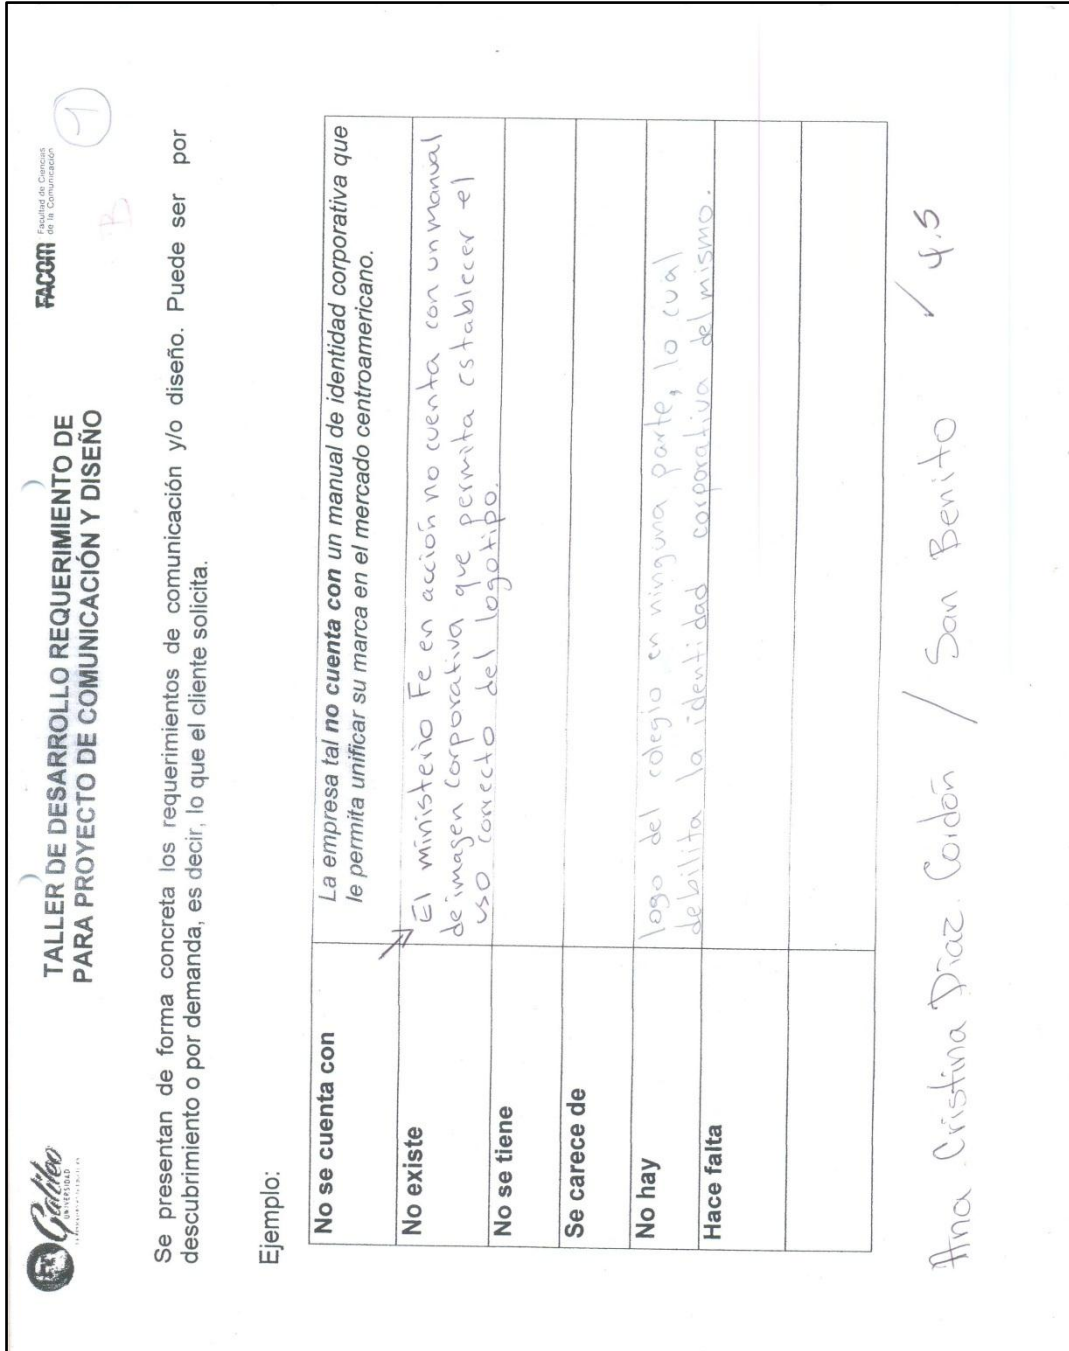 Galileo
UNIVERSIDAD
TALLER DE DESARROLLO REQUERIMIENTO DE
PARA PROYECTO DE COMUNICACIÓN Y DISEÑO
FACOM Facultad de Ciencias
de la Comunicación
B
1
Se presentan de forma concreta los requerimientos de comunicación y/o diseño. Puede ser por
descubrimiento o por demanda, es decir, lo que el cliente solicita.
Ejemplo:
No se cuenta con
La empresa tal no cuenta con un manual de identidad corporativa que
le permita unificar su marca en el mercado centroamericano.
No existe
El ministerio Fe en acción no cuenta con un manual
de imagen corporativa que permita establecer el
uso correcto del logotipo.
No se tiene
Se carece de
No hay
logo del colegio en ninguna parte, lo cual
debilita la identidad corporativa del mismo.
Hace falta
Ana Cristina Díaz Cordón / San Benito ✓ 4.5